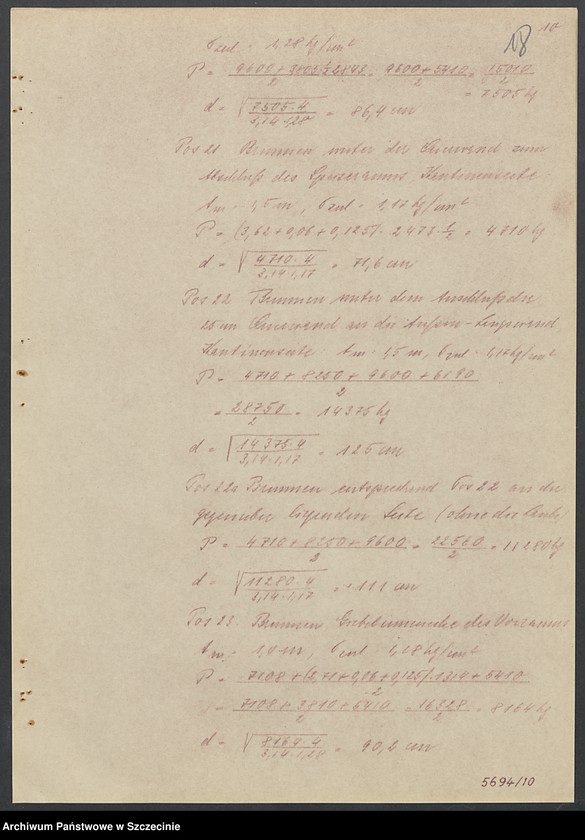 10
18
σzul = 1,28 kg/cm²
P = 9600 + + 2843 / 2 = 9600 + 5410 / 2 = 15010 / 2
= 7505 kg
d = √ 7505 · 4 / 3,14 · 1,28 = 86,4 cm
Pos 21 Brunnen unter der Querwand zum
Abschluß des Speiseraums Kantinenseite
tm = 1,5 m, σzul = 1,17 kg/cm²
P = (3,62 + 0,06 + 0,125) · 2473 · ½ = 4710 kg
d = √ 4710 · 4 / 3,14 · 1,17 = 71,6 cm
Pos 22 Brunnen unter dem Anschluß der
25 cm Querwand an die Außen-Längswand,
Kantinenseite tm = 1,5 m, σzul = 1,17 kg/cm²
P = 4710 + 8250 + 9600 + 6190 / 2
= 28750 / 2 = 14375 kg
d = √ 14375 · 4 / 3,14 · 1,17 = 125 cm
Pos 22a Brunnen entsprechend Pos 22 an der
gegenüber liegenden Seite (ohne
P = 4710 + 8250 + 9600 / 2 = 22560 / 2 = 11280 kg
d = √ 11280 · 4 / 3,14 · 1,17 = 111 cm
Pos 23. Brunnen des Vorraums
tm = 1,0 m, σzul = 1,28 kg/cm²
P = 7108 + (2,71 + 0,06 + 0,125) · 1314 + 5410 / 2
= 7108 + 3810 + 5410 / 2 = 16328 / 2 = 8164 kg
d = √ 8164 · 4 / 3,14 · 1,28 = 90,2 cm
5694/10
Archiwum Państwowe w Szczecinie